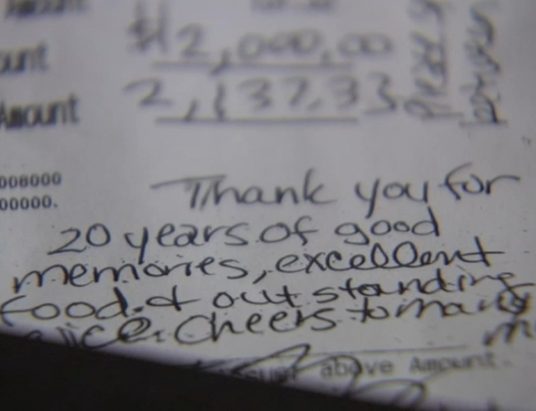 ount
$12,000.00
Amount
2,137.33
008000
00000.
Thank you for
20 years of good
memories, excellent
food. & outstanding
Cheers to many
above Amount.